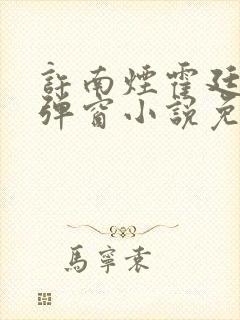 許南煙霍廷
彈窗小說免
馬寧袁